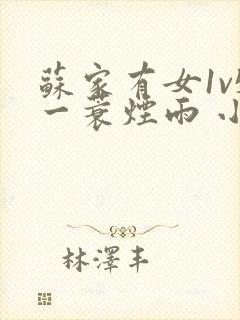 蘇家有女1v
一蓑煙雨 小
林澤丰